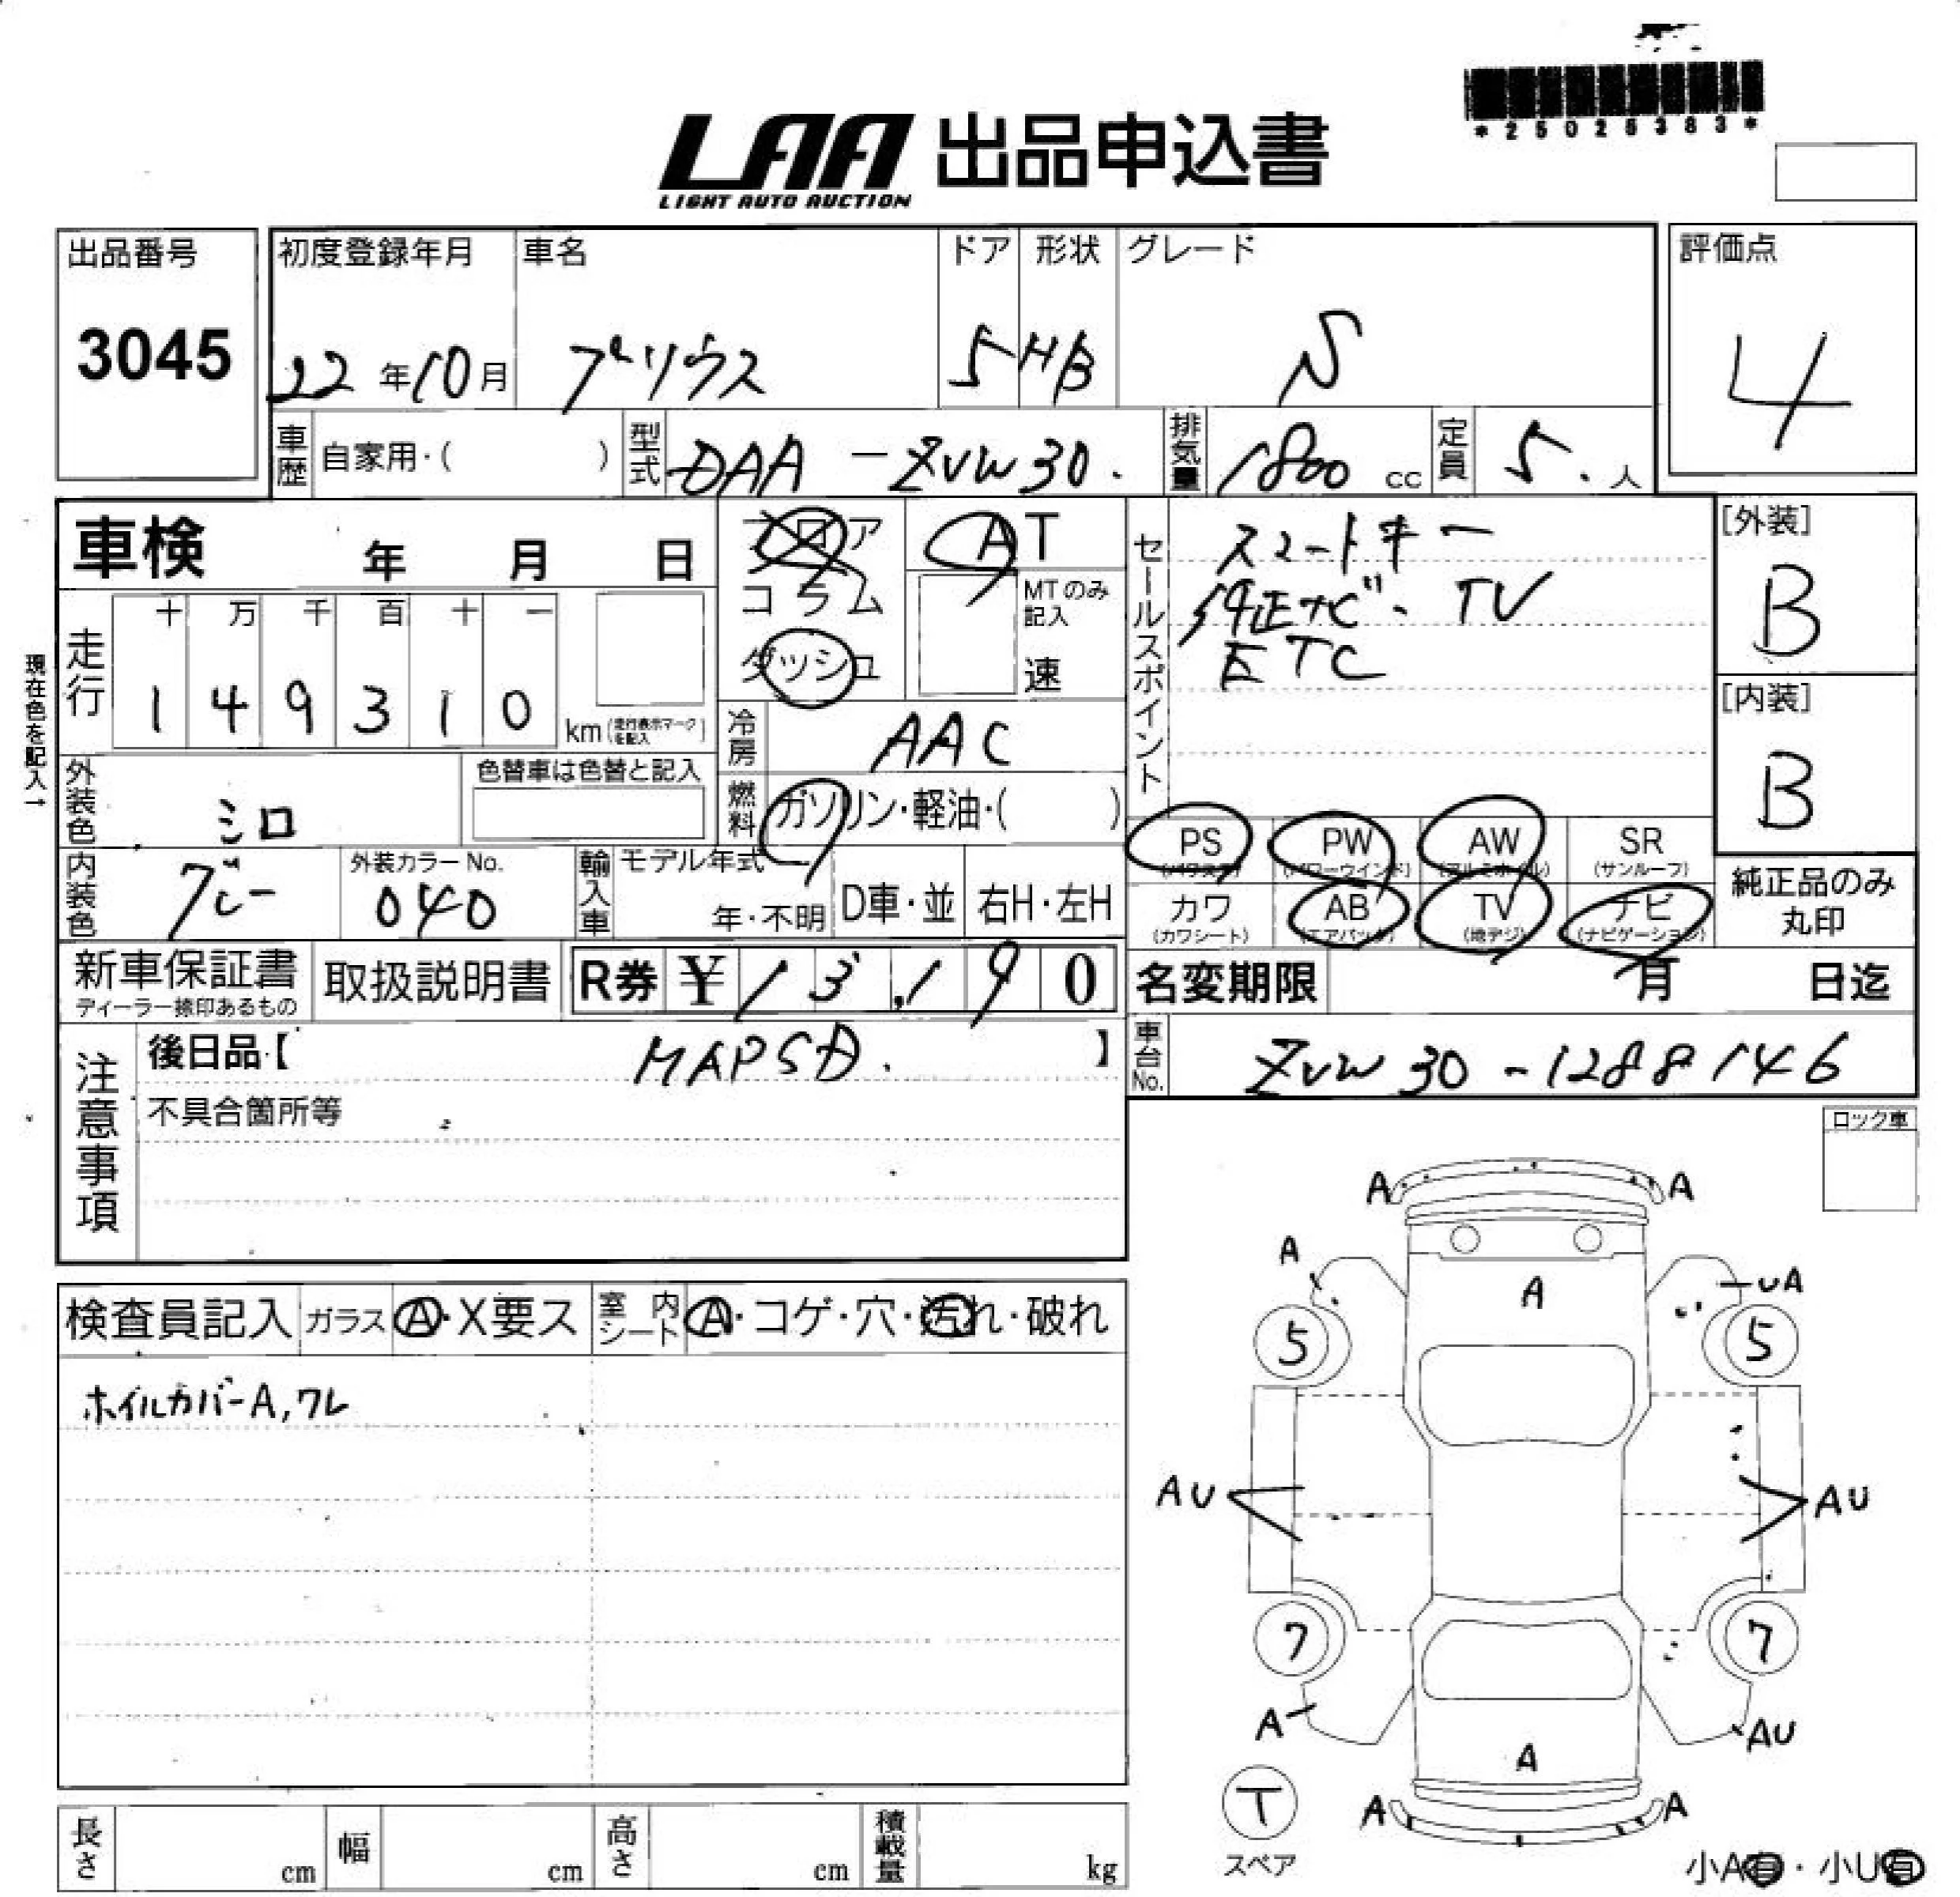 *25025383*
LAA 出品申込書
LIGHT AUTO AUCTION
出品番号
3045
初度登録年月
22年10月
車名
プリウス
ドア
5
形状
HB
グレード
S
評価点
4
車歴
自家用・( )
型式
DAA-ZVW30.
排気量
1800 cc
定員
5. 人
車検 年 月 日
フロア
コラム
ダッシュ
AT
MTのみ
記入
速
セールスポイント
スマートキー
純正ナビ・TV
ETC
[外装]
B
[内装]
B
現在色を記入→
走行
十 万 千 百 十 一
1 4 9 3 1 0
km(走行表示マークを記入)
冷房
AAC
燃料
ガソリン・軽油・( )
外装色
シロ
色替車は色替と記入
内装色
グレー
外装カラーNo.
040
輸入車
モデル年式
年・不明
D車・並
右H・左H
PS PW AW SR
(パワステ) (パワーウインド) (アルミホイル) (サンルーフ)
カワ AB TV ナビ
(カワシート) (エアバック) (地デジ) (ナビゲーション)
純正品のみ
丸印
新車保証書
ディーラー捺印あるもの
取扱説明書
R券 ¥13,190
名変期限 月 日迄
注意事項
後日品【 MAPSD. 】
不具合箇所等
車台No.
ZVW30-1288146
ロック車
検査員記入
ガラス
A・X要ス
室内
シート
A・コゲ・穴・汚れ・破れ
ホイルカバーA,ワレ
A A
A
A
UA
5 5
AU AU
7 7
A
A
AU
T
スペア
A A
小A有・小U有
長さ cm
幅 cm
高さ cm
積載量 kg